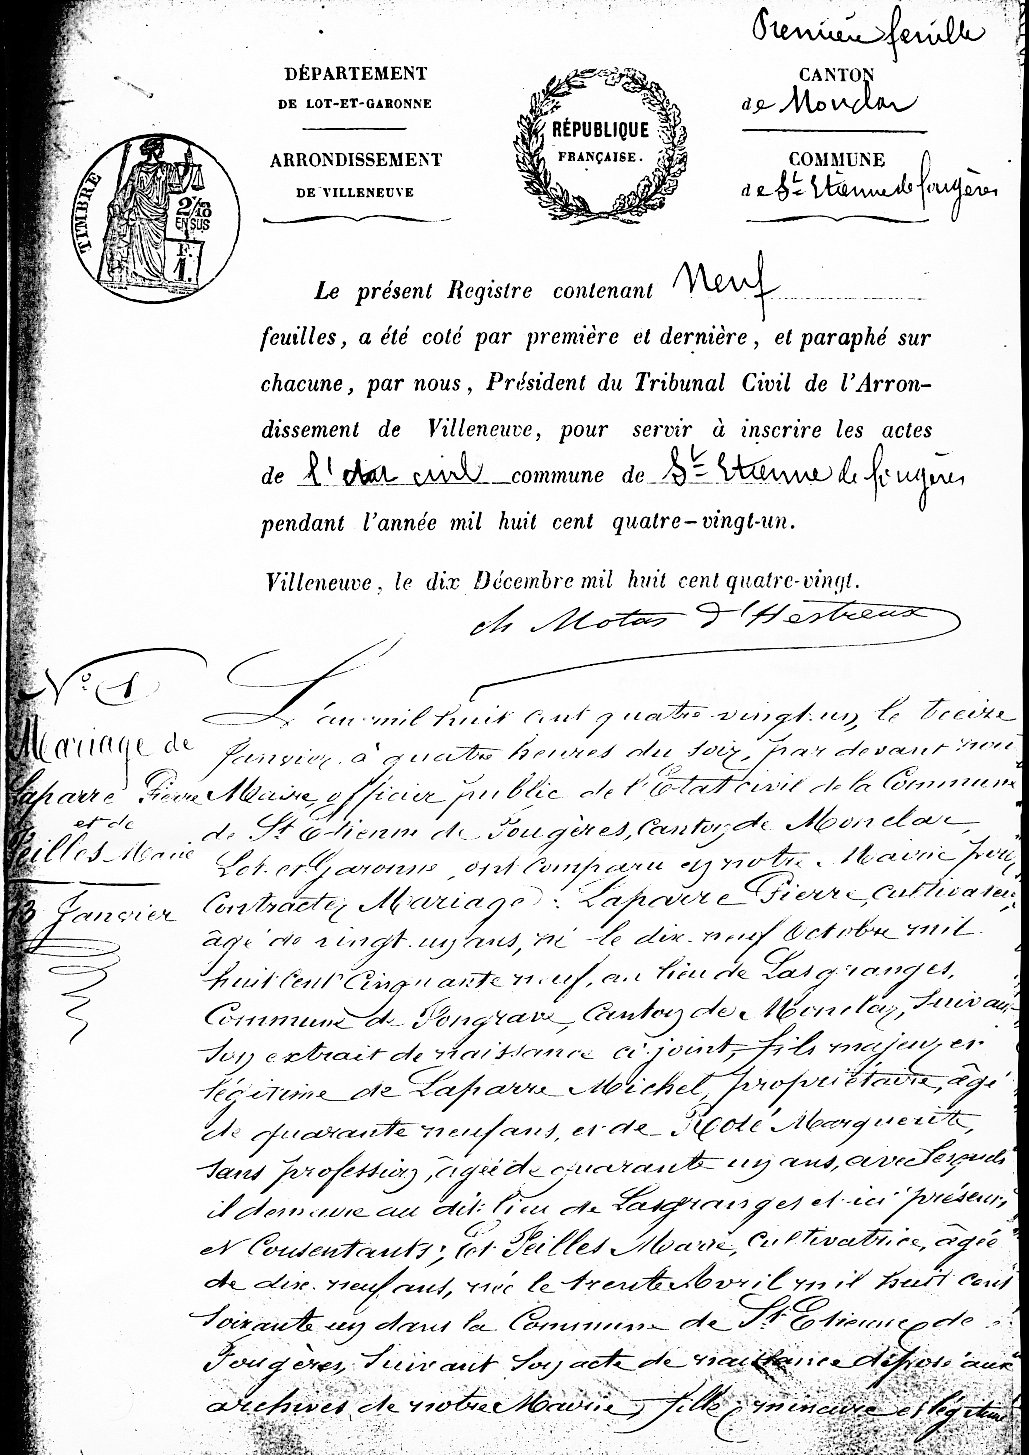 Première feuille
DÉPARTEMENT
DE LOT-ET-GARONNE
ARRONDISSEMENT
DE VILLENEUVE
RÉPUBLIQUE
FRANÇAISE.
CANTON
de Monclar
COMMUNE
de St Etienne de fougères
TIMBRE
2/10
EN SUS
F.
1.
Le présent Registre contenant Neuf
feuilles, a été coté par première et dernière, et paraphé sur
chacune, par nous, Président du Tribunal Civil de l'Arron-
dissement de Villeneuve, pour servir à inscrire les actes
de l'état civil commune de St Etienne de fougères
pendant l'année mil huit cent quatre-vingt-un.
Villeneuve, le dix Décembre mil huit cent quatre-vingt.
ch Motas d'Hestreux
N° 1
Mariage de
Laparre Pierre
et de
Peilles Marie
13 Janvier
L'an mil huit cent quatre-vingt-un, le treize
Janvier à quatre heures du soir, par devant nous
Maire, officier public de l'Etat civil de la Commune
de St Etienne de Fougères, canton de Monclar,
Lot et Garonne, ont comparu en notre Mairie pour
contracter Mariage: Laparre Pierre, cultivateur,
âgé de vingt-un ans, né le dix-neuf Octobre mil
huit cent cinquante neuf, au lieu de Lasgranges,
Commune de Fongrave, Canton de Monclar, suivant
son extrait de naissance ci-joint, fils majeur et
légitime de Laparre Michel, propriétaire, âgé
de quarante neuf ans, et de Rodé Marguerite,
sans profession, âgée de quarante un ans, avec lesquels
il demeure au dit lieu de Lasgranges et ici présents
et Consentants; Et Peilles Marie, cultivatrice, âgée
de dix-neuf ans, née le trente Avril mil huit cent
soixante un dans la Commune de St Etienne de
Fougères, suivant son acte de naissance déposé aux
archives de notre Mairie, fille mineure et légitime